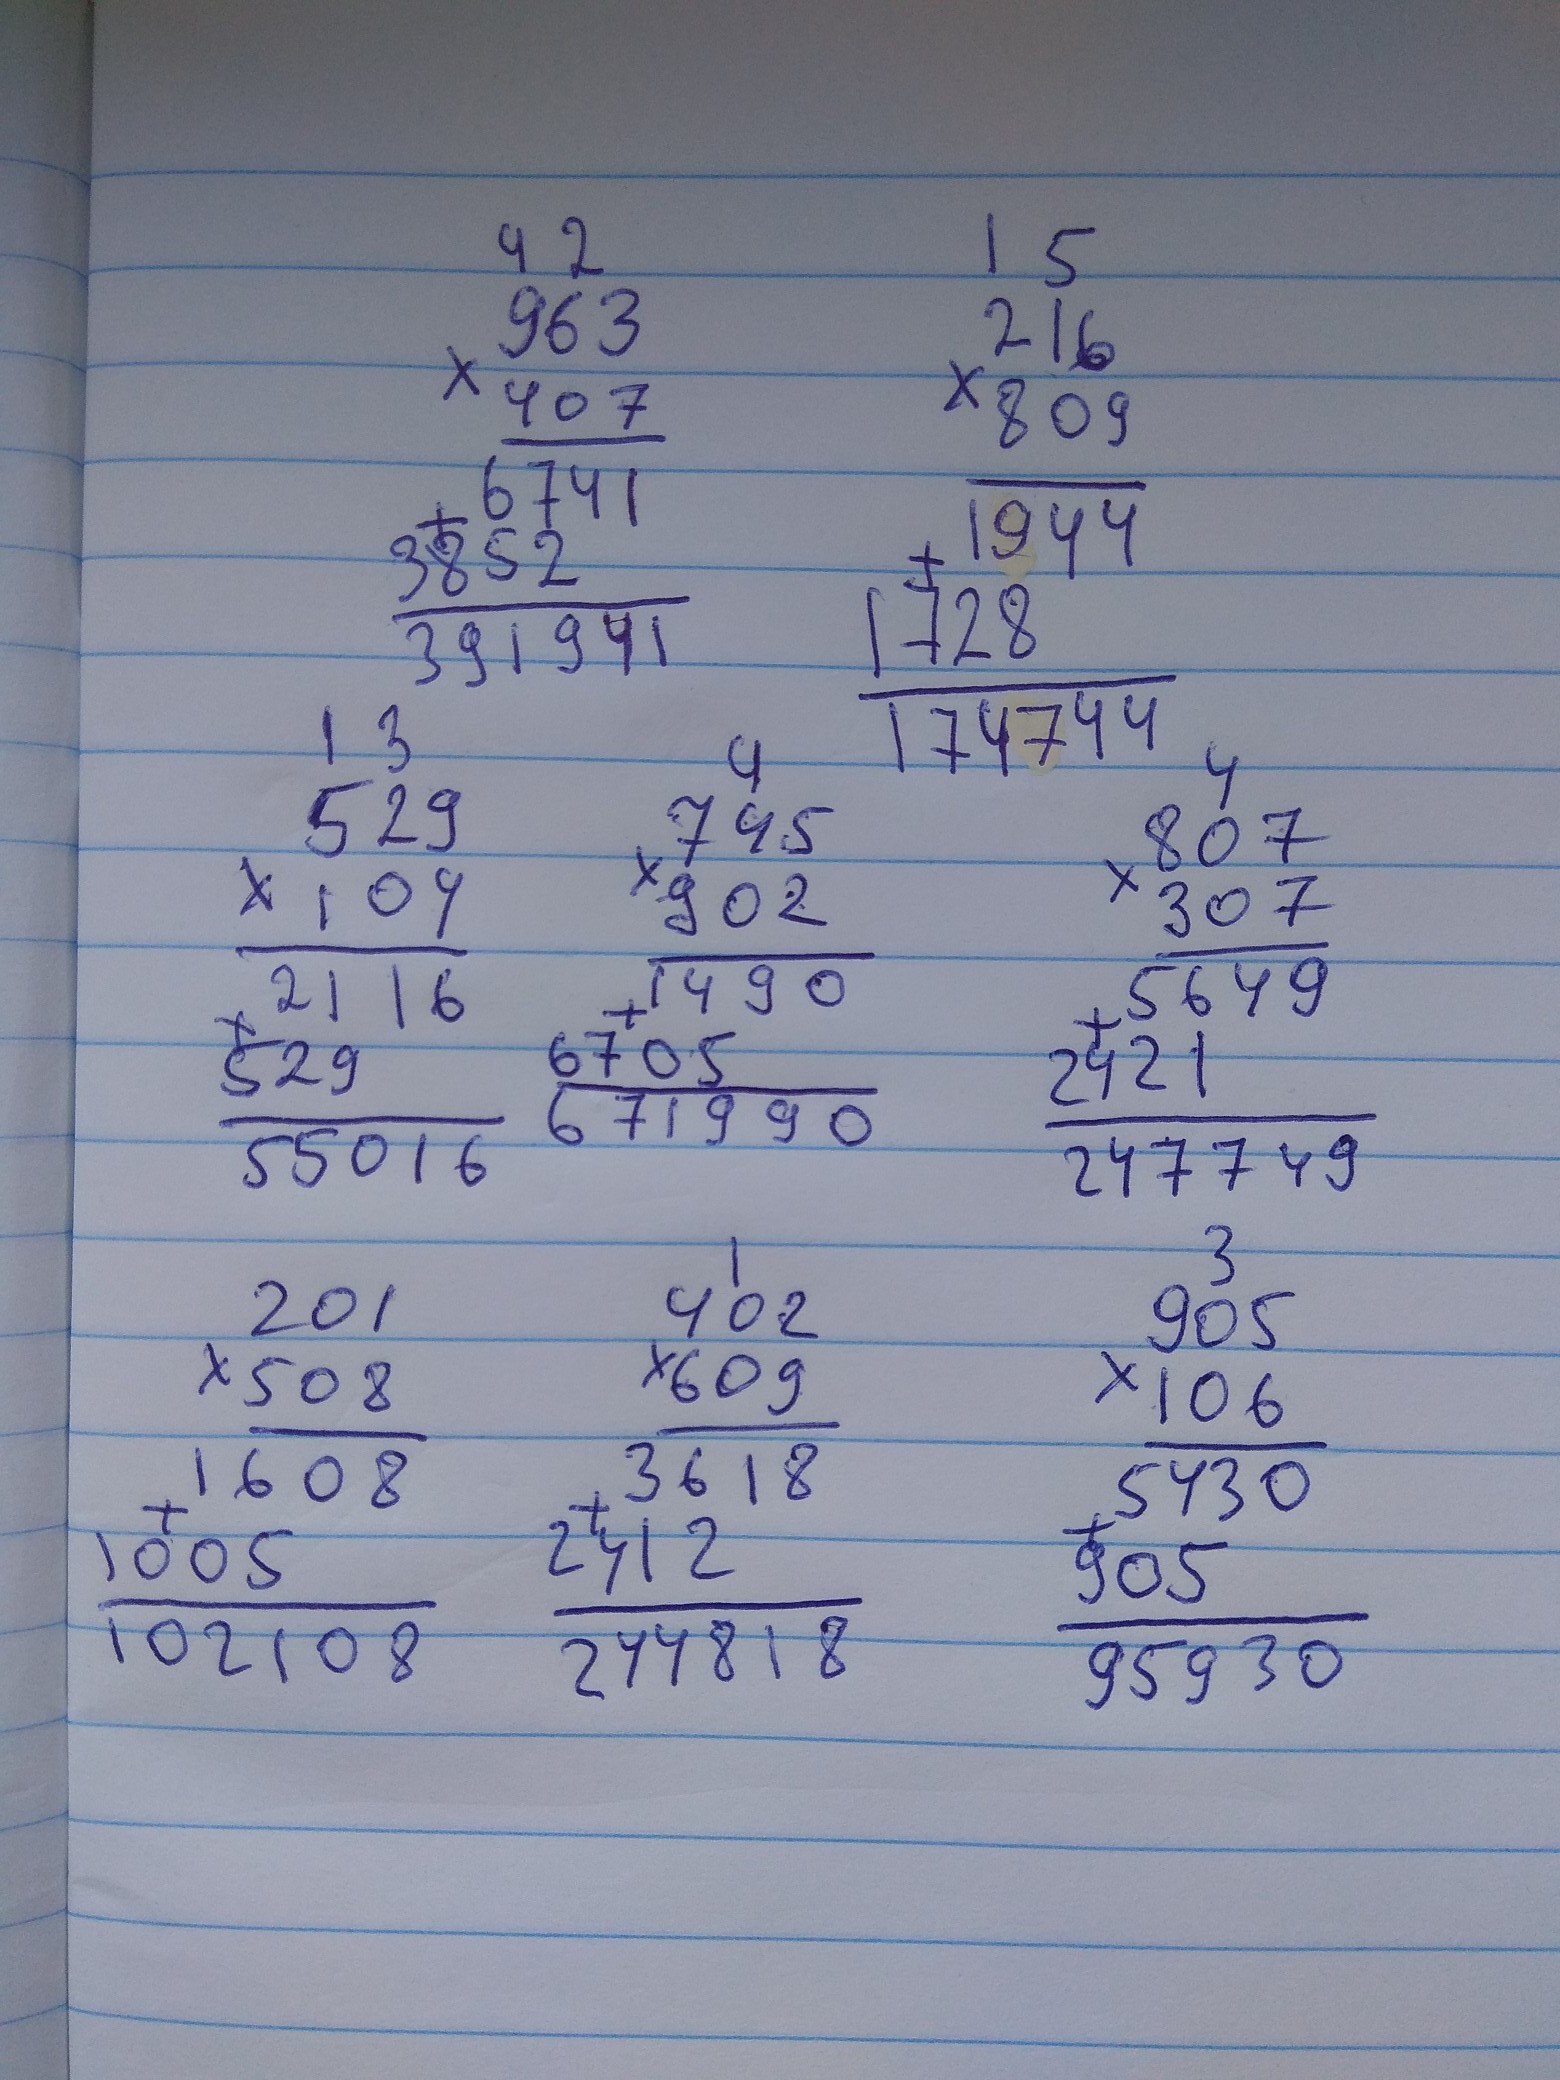 4 2
963
x 407
6741
+
3852
391941
1 5
216
x 809
1944
+
1728
174744
1 3
529
x 104
2116
+
529
55016
4
745
x 902
1490
+
6705
671990
4
807
x 307
5649
+
2421
247749
201
x 508
1608
+
1005
102108
1
402
x 609
3618
+
2412
244818
3
905
x 106
5430
+
905
95930